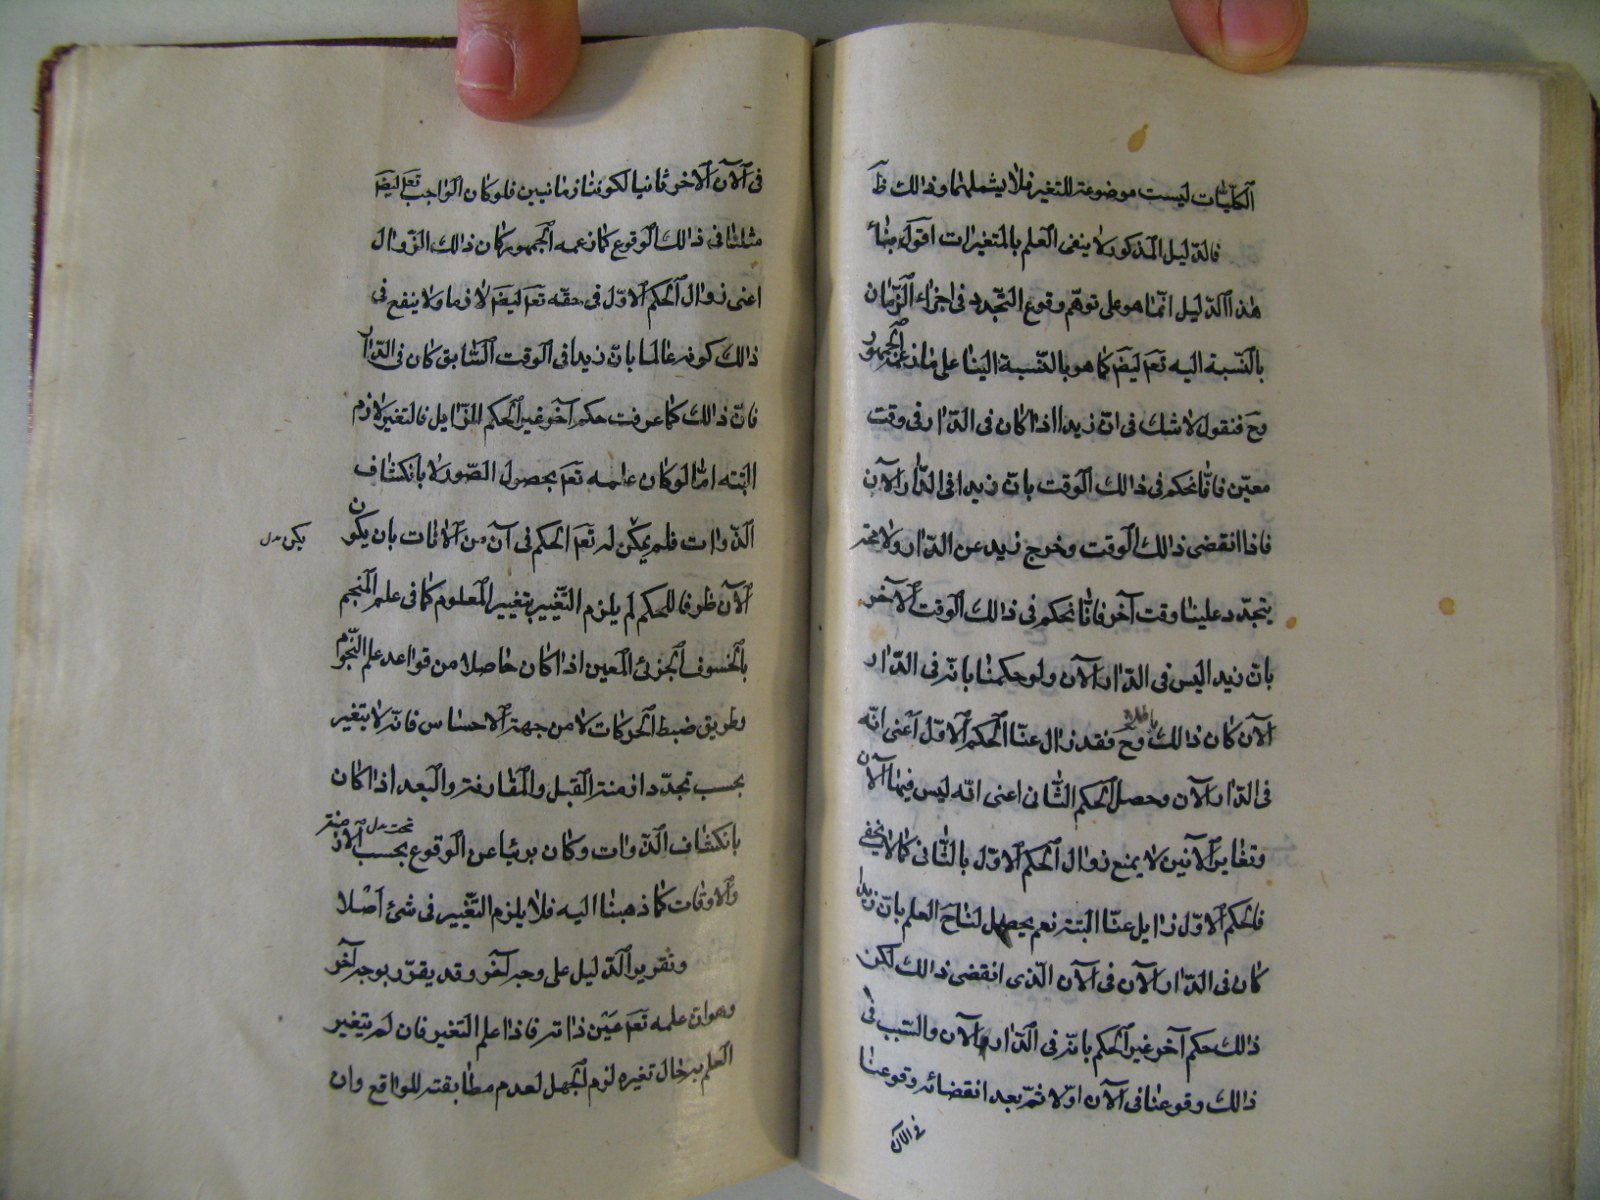 الكليات ليست موضوعة للتغير فلا يشملهما وذلك ظ
فالدليل المذكور لا ينفى العلم بالمتغيرات اقول بناء
هذا الدليل انما هو على توهم وقوع التجدد فى اجزاء الزمان
بالنسبة اليه تعم ليضم كما هو بالنسبة الينا على ما زعمه الجمهور
وح فنقول لا شك فى ان زيدا اذا كان فى الدار فى وقت
معين فانا نحكم فى ذلك الوقت بان زيدا فى الدار الآن
فاذا انقضى ذلك الوقت وخرج زيد عن الدار ولا محة
يتجدد علينا وقت آخر فانا نحكم فى ذلك الوقت الآخر
بان زيدا ليس فى الدار الآن ولو حكمنا بانه فى الدار
الآن كان ذلك باطلا وح فقد زال عنا الحكم الاول اعنى انه
فى الدار الآن وحصل الحكم الثانى اعنى انه ليس فيها الآن
وتغاير الآنين لا يمنع زوال الحكم الاول بالثانى كما لا يخفى
فالحكم الاول زايل عنا البتة نعم يحصل لنا ح العلم بان زيدا
كان فى الدار الآن فى الآن الذى انقضى ذلك لكن
ذلك حكم آخر غير الحكم بانه فى الدار الآن والسبب فى
ذلك وقوعنا فى الآن اولا ثم بعد انقضائه وقوعنا
فى الآن
فى الآن الآخر ثانيا لكوننا زمانيين فلو كان الواجب تعم ليضم
مثلنا فى ذلك الوقوع كما زعمه الجمهور كان ذلك الزوال
اعنى زوال الحكم الاول فى حقه تعم ليضم لازما ولا ينفع فى
ذلك كونه عالما بان زيدا فى الوقت السابق كان فى الدار
فان ذلك كما عرفت حكم آخر غير الحكم الزايل فالتغير لازم
البته اما لو كان علمه تعم بحصول الصور لا بانكشاف
الذوات فلم يمكن له تعم الحكم فى آن من الآنات بان يكون
يكن بدل
الآن ظرفا للحكم لم يلزم التغيير بتغيير المعلوم كما فى علم المنجم
بالخسوف الجزئى المعين اذا كان حاصلا من قواعد علم النجوم
وطريق ضبط الحركات لا من جهة الاحساس فانه لا يتغير
بحسب تجدد ازمنة القبل والمقارنة والبعد اذا كان
بانكشاف الذوات وكان بريئا عن الوقوع بحسب الازمنة
تحت بدل
والاوقات كما ذهبنا اليه فلا يلزم التغيير فى شئ اصلا
وتقرير الدليل على وجه آخر وقد يقرر بوجه آخر
وهو ان علمه تعم عين ذاته فاذا علم التغير فان لم يتغير
العلم به حال تغيره لزم الجهل لعدم مطابقته للواقع وان